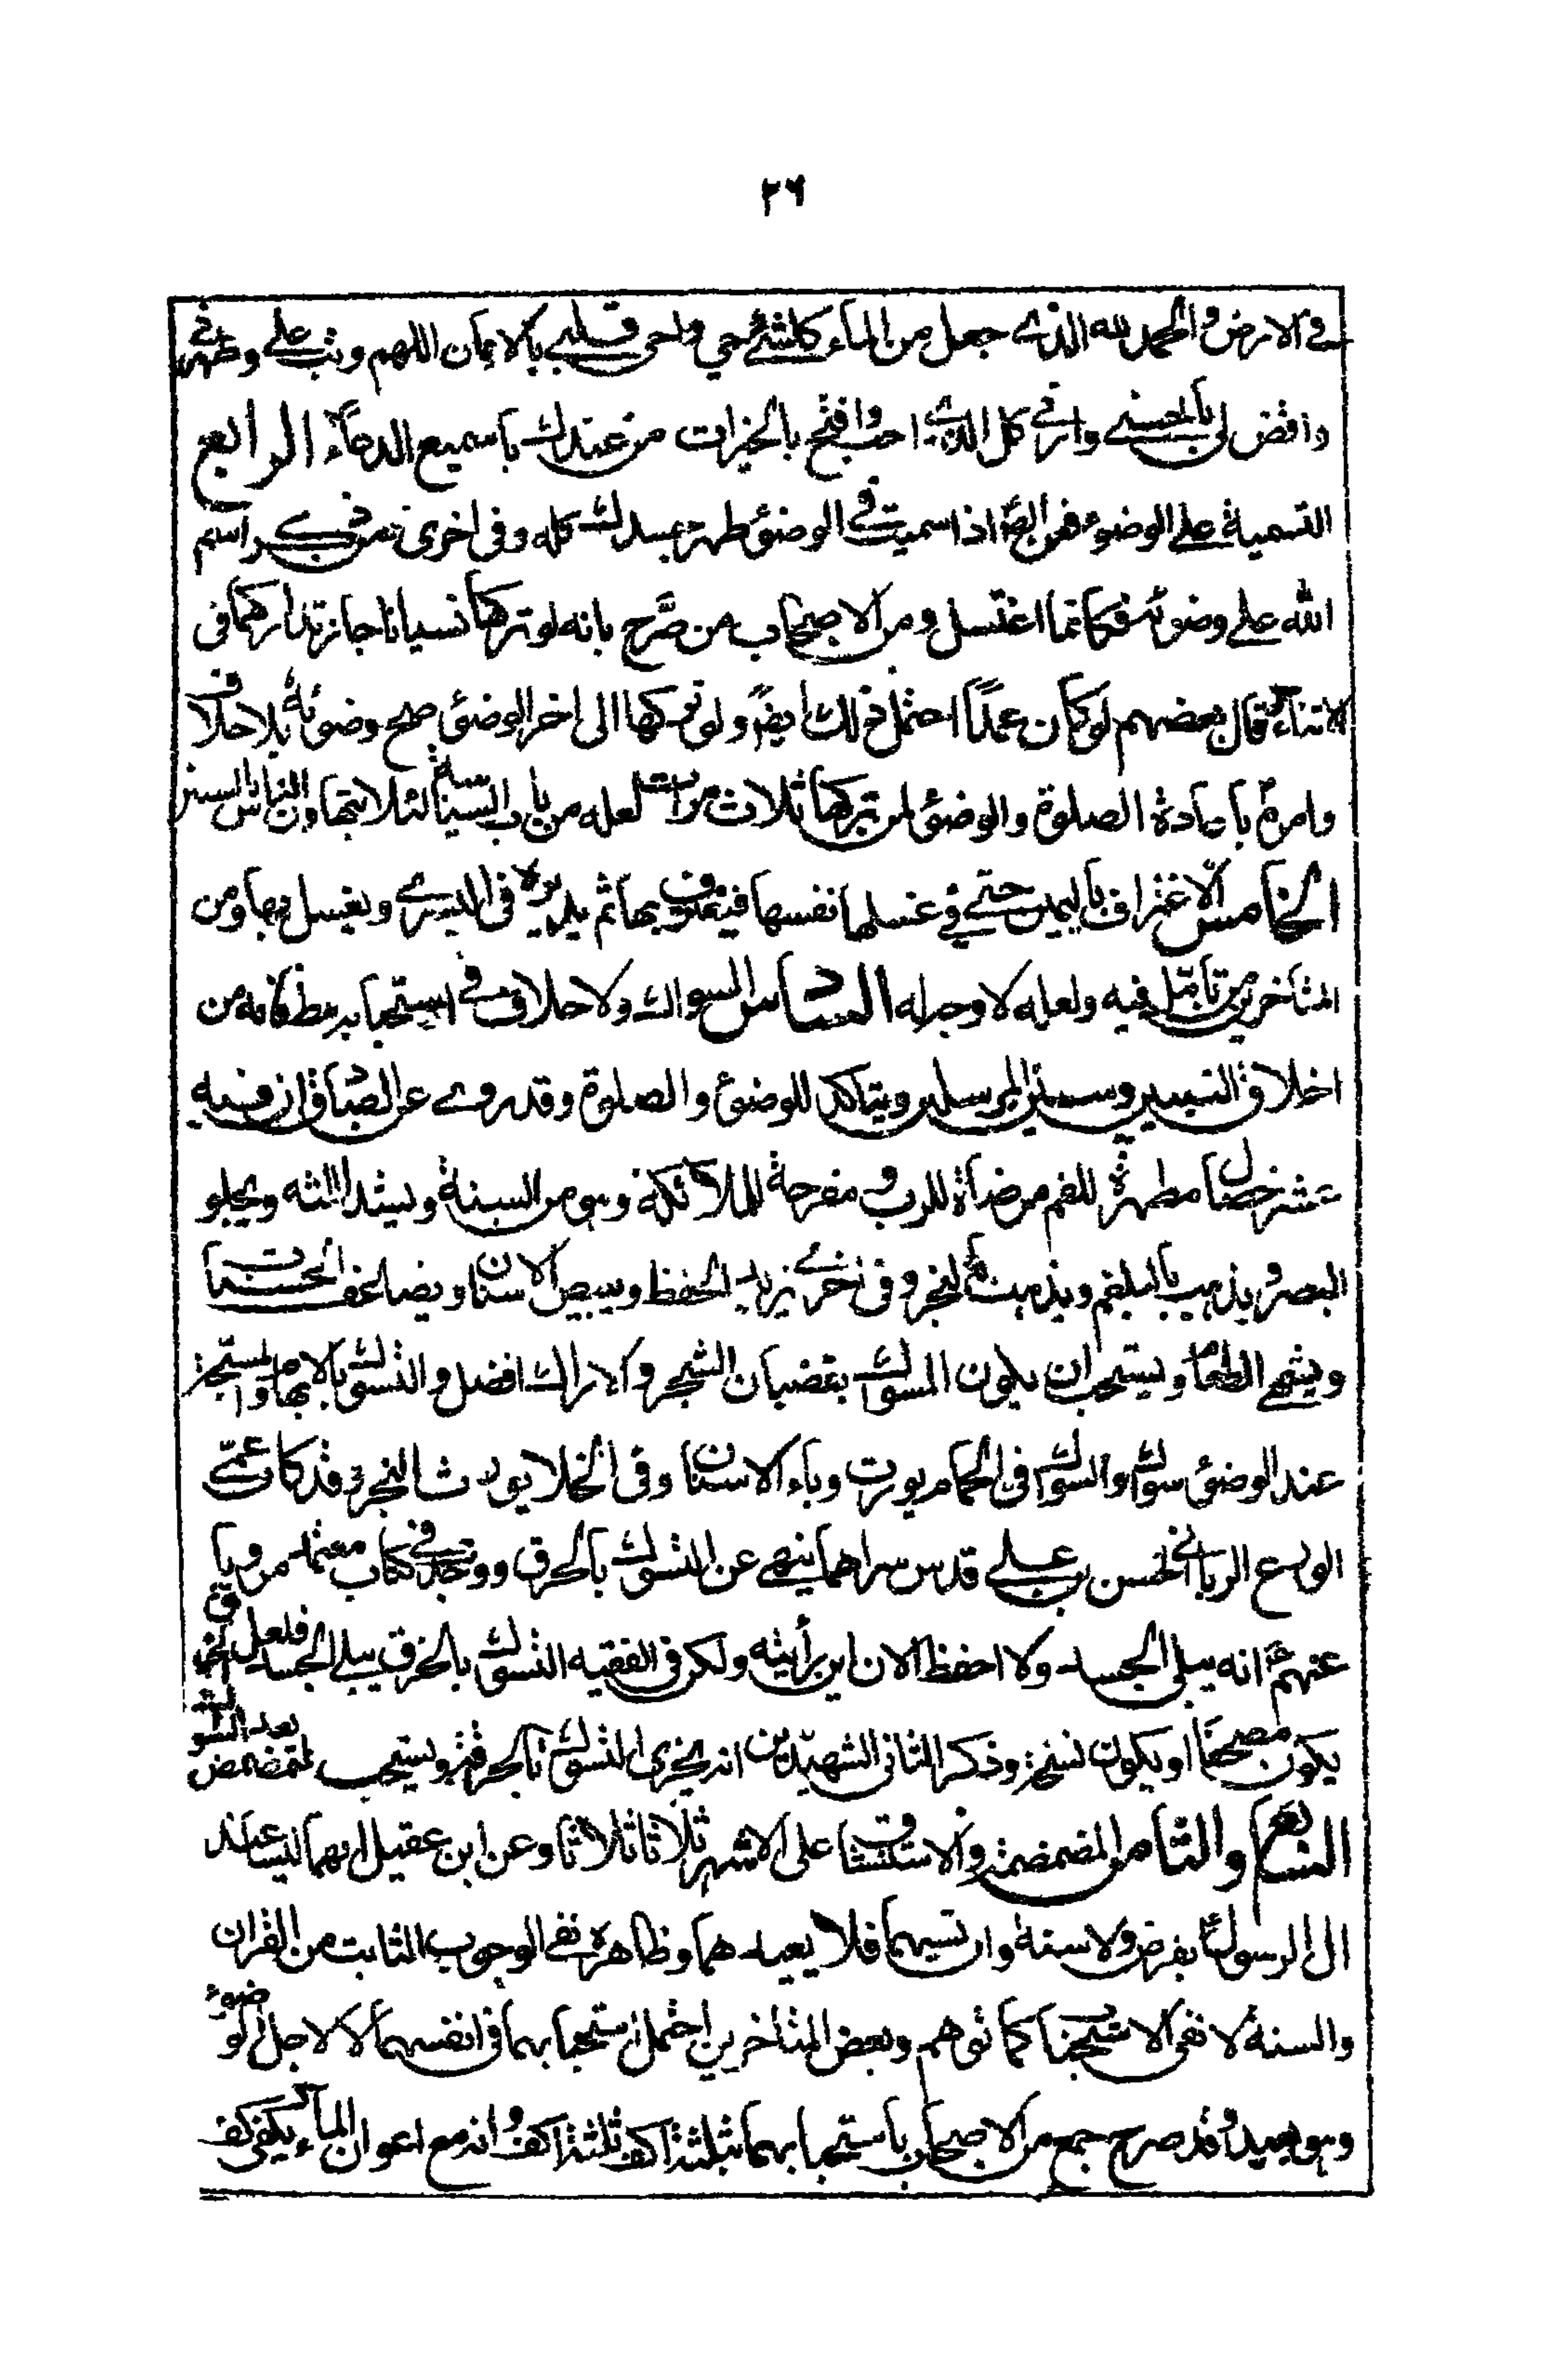 ٢٦
في الارض والحمد لله الذي جعل من الماء كلشئ حي واحى قلبي بالايمان اللهم وتب علي وطهرني
واقض لي بالحسنى وارني كل الذي احب وافتح بالخيرات من عندك يا سميع الدعاء الرابع
التسمية على الوضوء فعن اذا سميت في الوضوء طهر جسدك كله وفي اخرى من ذكر اسم
الله على وضوئه فكانما اغتسل ومن الاصحاب من صرّح بانه لو تركها نسيانا جاز تداركها في
الاثناء قال بعضهم لو كان عمداً احتمل ذلك ايضً ولو تركها الى اخر الوضوء صح وضوئه بلا خلاف
وامره باعادة الصلوة والوضوء لمن تركها ثلاث مرات لعله من باب السياسة لئلا يتهاون الناس السنن
الخامس الاغتراف باليمين حتى في غسلها نفسها فيغترف بها ثم يديره في اليسرى ويغسل بها ومن
المتاخرين من تامّل فيه ولعله لا وجه له السادس السواك ولا خلاف في استحبابه مط فانه من
اخلاق النبيين وسنن المرسلين ويتاكد للوضوء والصلوة وقد روي عن الصادق ان فيه
عشر خصال مطهرة للفم مرضاة للرب ومفرحة للملائكة وهو من السنة ويشد اللثه ويجلو
البصر ويذهب بالبلغم ويذهب بالحفر وفي اخرى يزيد الحفظ ويبيض الاسنان ويضاعف الحسنات
ويشهي الطعام ويستحب ان يكون المسواك بقضبان الشجر والاراك افضل والتسوك بالابهام والمسبحة
عند الوضوء سواك والسواك في الحمام يورث وباء الاسنان وفي الخلا يورث البخر وقد كان عمي
الورع الرباني الحسن بن علي قدس سراهما ينهى عن التسوك بالخرق ووجدت في كتاب معتمد مرويا
عنهم انه يبلي الجسد ولا احفظ الان اين رأيته ولكن في الفقيه التسوك بالخزف يبلي الجسد فلعل الخرق
يكون مصحفا او يكون نسخة وذكر الثاني الشهيدين انه يجزى التسوك بالخرقة ويستحب التمضمض بعد السواك
السابع والثامن المضمضة والاستنشاق على الاشهر ثلاثا ثلاثا وعن ابن عقيل انهما ليسا عند
ال الرسول بفرض ولا سنة وان نسيهما فلا يعيدهما وظاهره نفى الوجوب الثابت من القران
والسنة لا نفى الاستحباب كما توهم وبعض المتاخرين احتمل استحبابهما في انفسهما لا لاجل الوضوء
وهو بعيد وقد صرح جمع من الاصحاب باستحبابهما بثلثة اكف ثلثة اكف وانه مع اعواز الماء يكفي كف